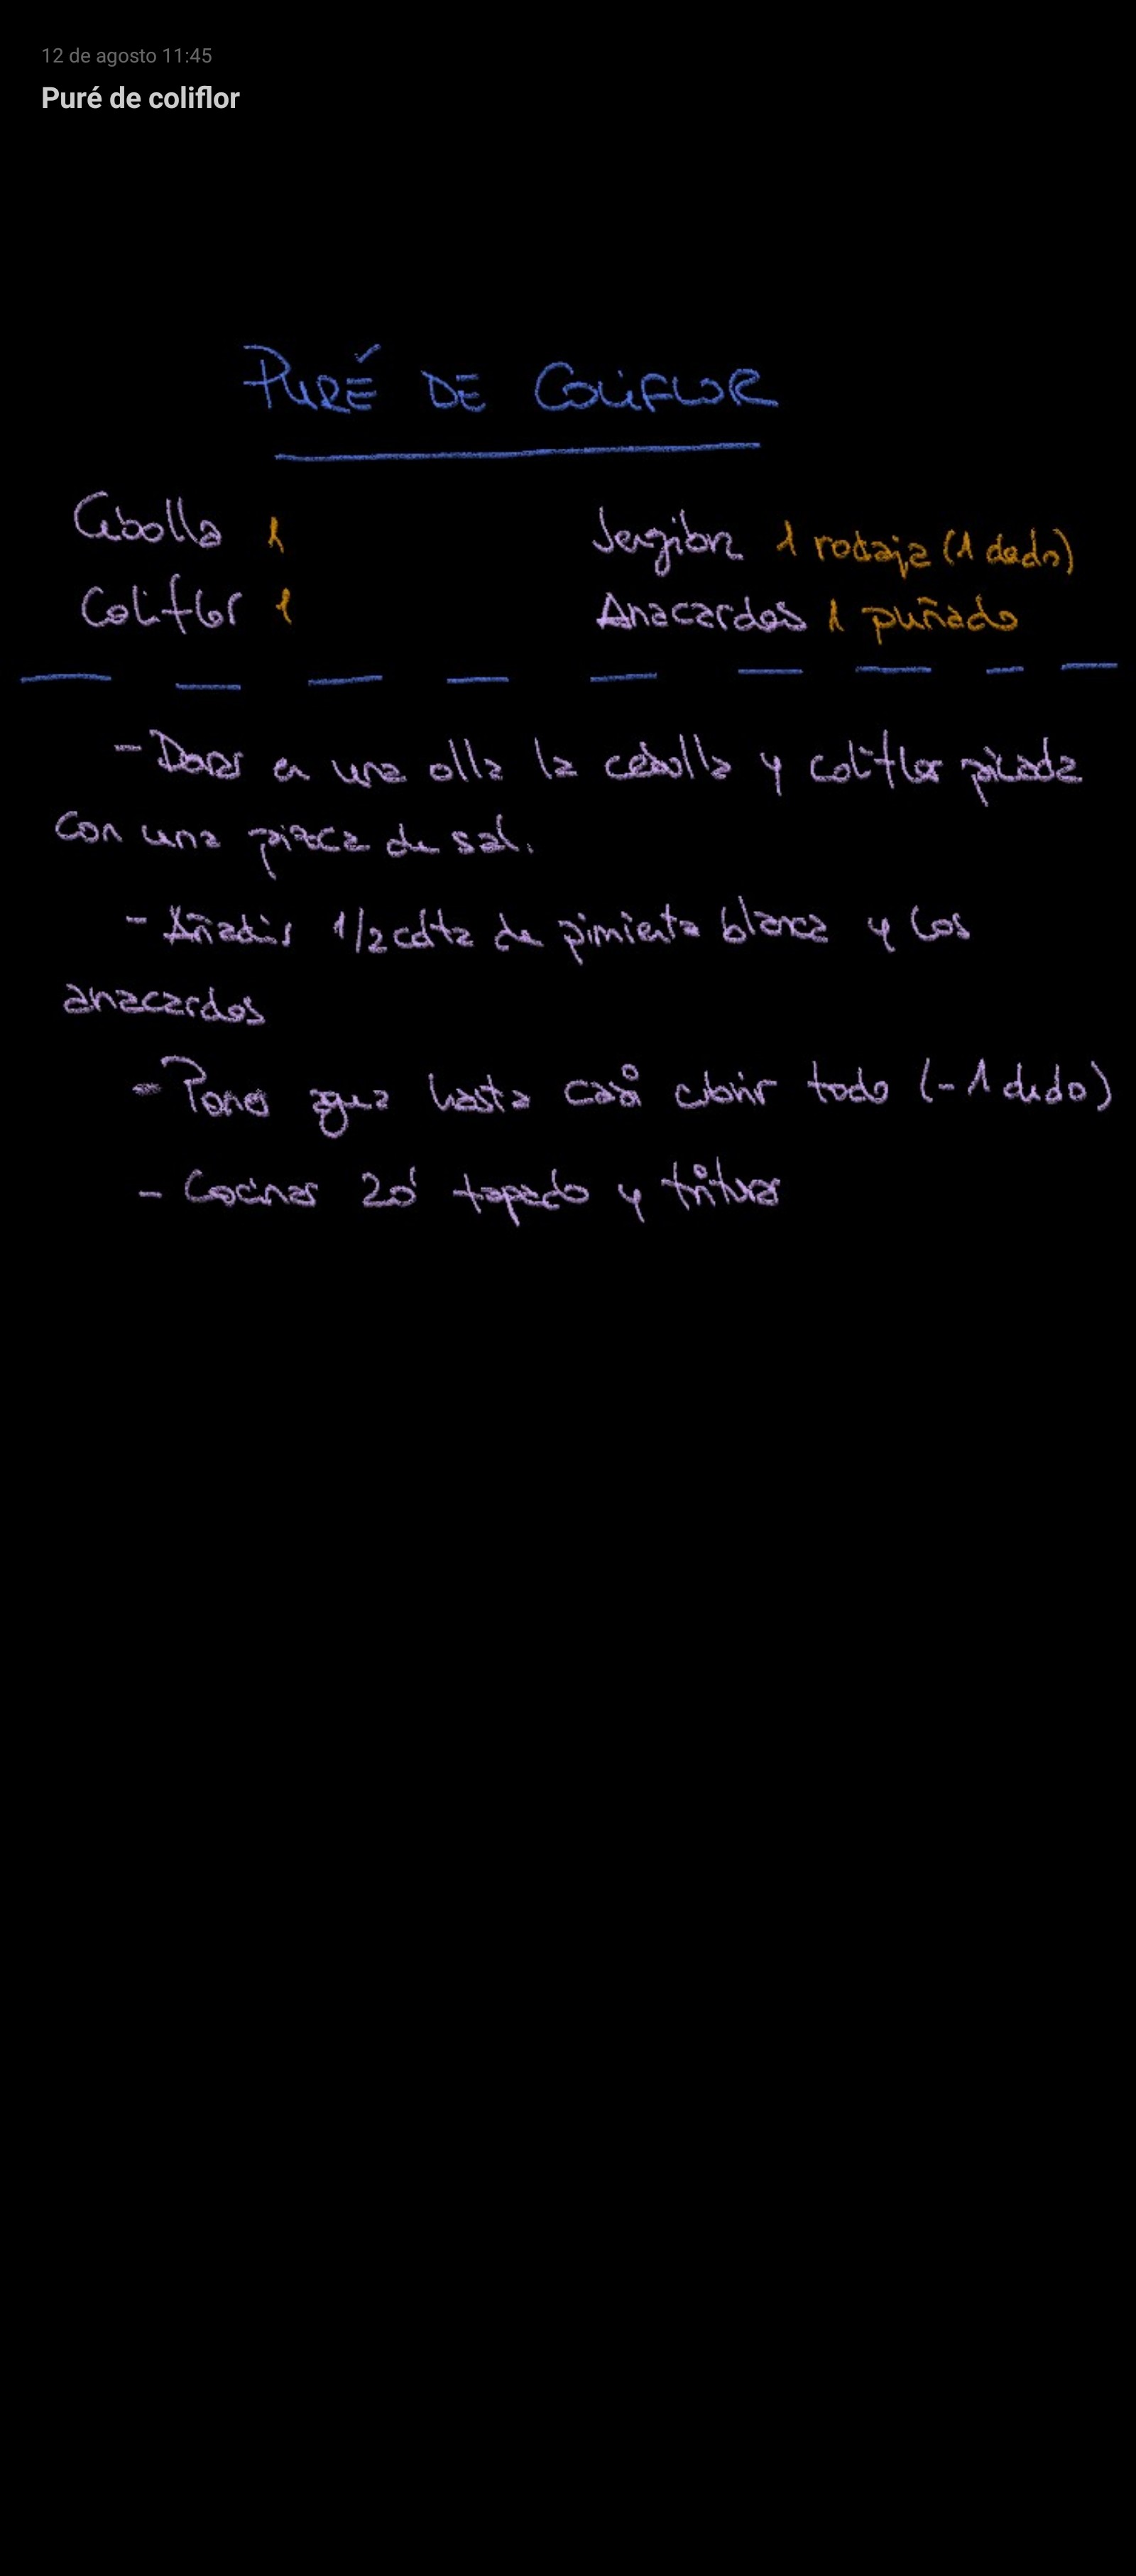 12 de agosto 11:45
Puré de coliflor
PURÉ DE COLIFLOR
Cebolla 1 Jengibre 1 rodaja (1 dedo)
Coliflor 1 Anacardos 1 puñado
- Dorar en una olla la cebolla y coliflor picada
con una pizca de sal.
- Añadir 1/2 cdta de pimienta blanca y los
anacardos
- Poner agua hasta casi cubrir todo (-1 dedo)
- Cocinar 20' tapado y triturar